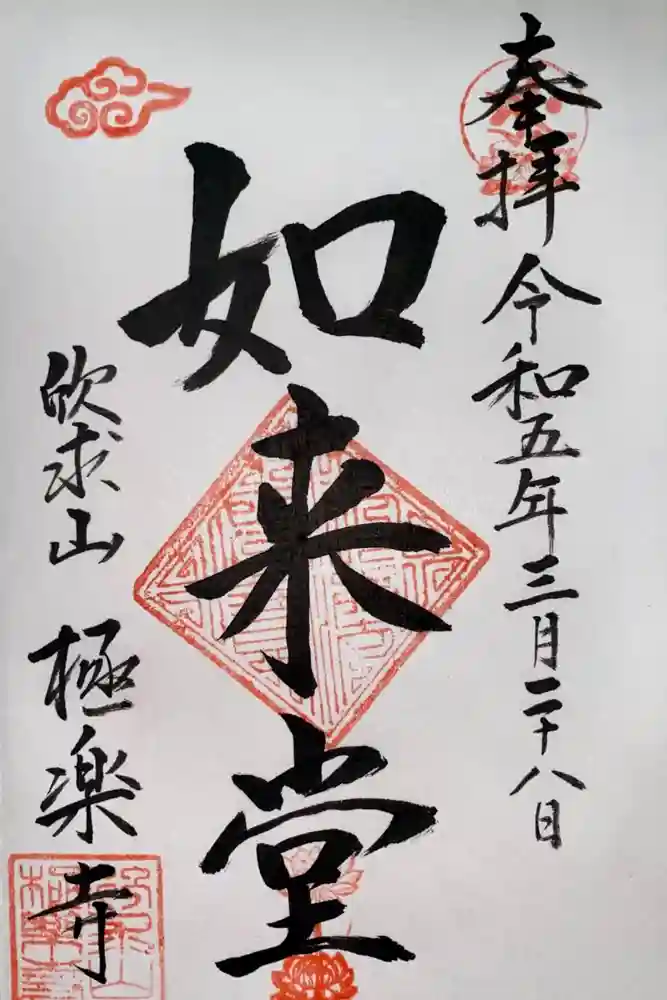 奉拝
令和五年三月二十八日
如来堂
欣求山
極楽寺